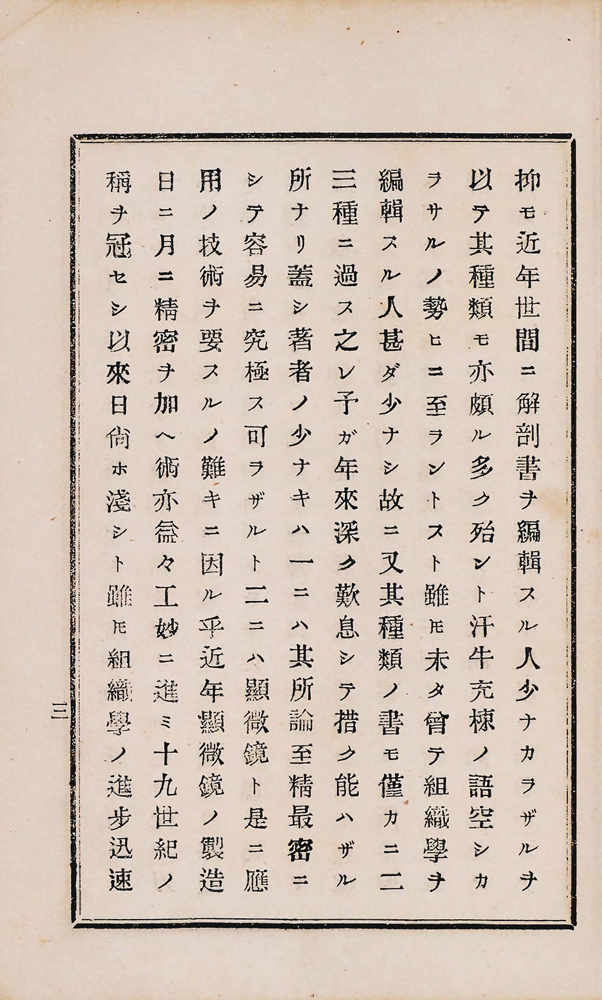 抑モ近年世間ニ解剖書ヲ編輯スル人少ナカラザルヲ
以テ其種類モ亦頗ル多ク殆ント汗牛充棟ノ語空シカ
ヲサルノ勢ヒニ至ラントスト雖𪜈未タ曾テ組織學ヲ
編輯スル人甚ダ少ナシ故ニ又其種類ノ書モ僅カニ二
三種ニ過ス之レ予ガ年來深ク歎息シテ措ク能ハザル
所ナリ蓋シ著者ノ少ナキハ一ニハ其所論至精最密ニ
シテ容易ニ究極ス可ヲザルト二ニハ顯微鏡ト是ニ應
用ノ技術ヲ要スルノ難キニ因ル乎近年顯微鏡ノ製造
日ニ月ニ精密ヲ加ヘ術亦益々工妙ニ進ミ十九世紀ノ
稱ヲ冠セシ以來日尙ホ淺シト雖𪜈組織學ノ進步迅速
三